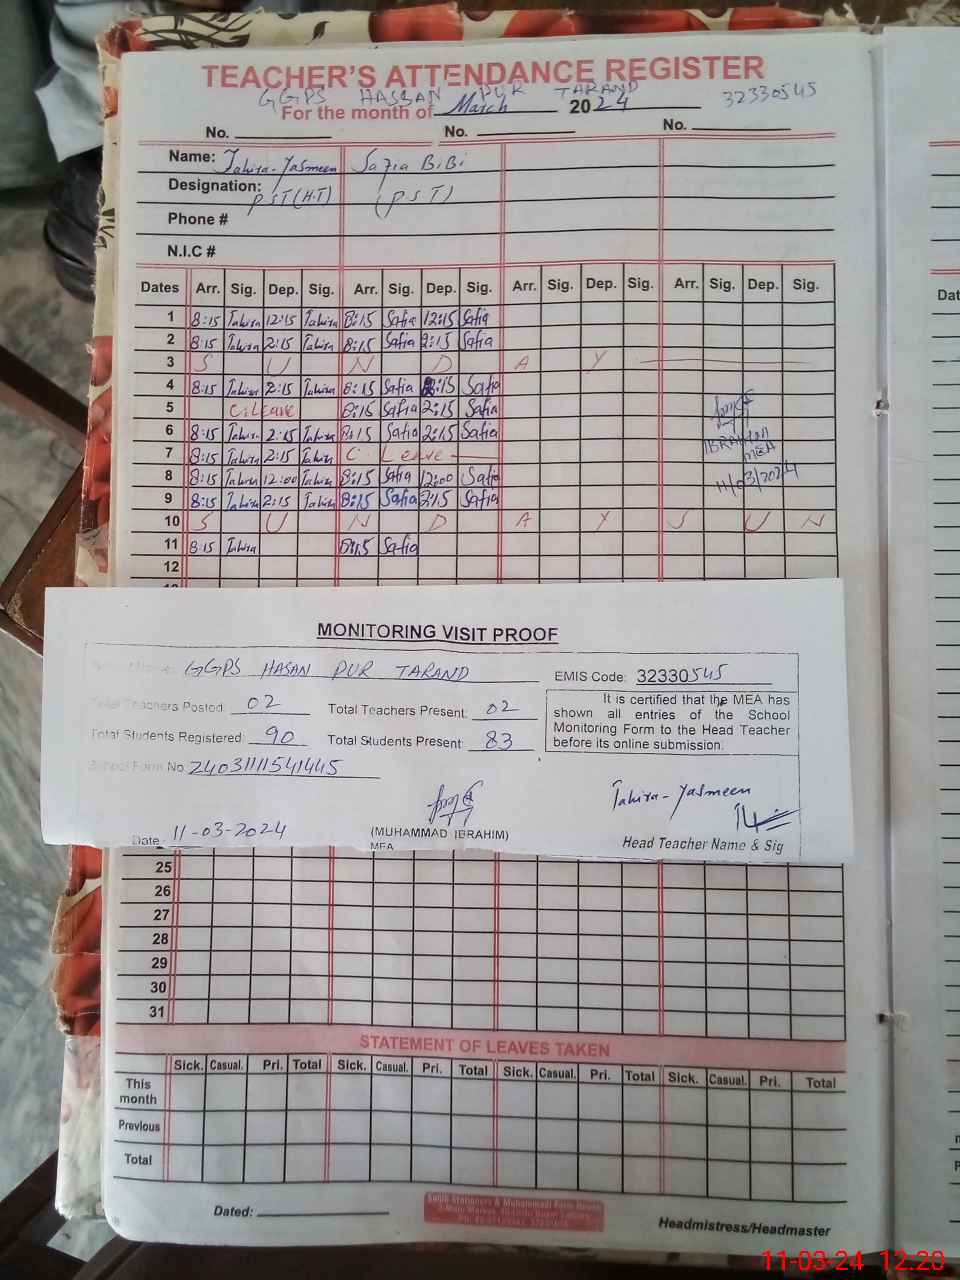 TEACHER'S ATTENDANCE REGISTER
GGPS HASSAN PUR TARAND 32330545
For the month of March 2024
No. No. No.
Name: Tahira-Yasmeen Safia BiBi
Designation: PST(H.T) (P.S.T)
Phone #
N.I.C #
Dates Arr. Sig. Dep. Sig. Arr. Sig. Dep. Sig. Arr. Sig. Dep. Sig. Arr. Sig. Dep. Sig.
1 8:15 Tahira 12:15 Tahira 8:15 Safia 12:15 Safia
2 8:15 Tahira 2:15 Tahira 8:15 Safia 2:15 Safia
3 S U N D A Y
4 8:15 Tahira 2:15 Tahira 8:15 Safia 2:15 Safia
5 C.Leave 8:15 Safia 2:15 Safia
6 8:15 Tahira 2:15 Tahira 8:15 Safia 2:15 Safia
7 8:15 Tahira 2:15 Tahira C. Leave
IBRAHIM
MEA
8 8:15 Tahira 12:00 Tahira 8:15 Safia 12:00 Safia
11/03/2024
9 8:15 Tahira 2:15 Tahira 8:15 Safia 2:15 Safia
10 S U N D A Y S U N
11 8:15 Tahira 8:15 Safia
12
MONITORING VISIT PROOF
GGPS HASAN PUR TARAND EMIS Code: 32330545
Total Teachers Posted: 02 Total Teachers Present: 02
Total Students Registered: 90 Total Students Present: 83
It is certified that the MEA has
shown all entries of the School
Monitoring Form to the Head Teacher
before its online submission.
School Form No 2403111541445
Tahira-Yasmeen
Date 11-03-2024 (MUHAMMAD IBRAHIM) Head Teacher Name & Sig
MEA
25
26
27
28
29
30
31
STATEMENT OF LEAVES TAKEN
Sick. Casual. Pri. Total Sick. Casual. Pri. Total Sick. Casual. Pri. Total Sick. Casual. Pri. Total
This month
Previous
Total
Dated:
Headmistress/Headmaster
Dat
11-03-24 12:20